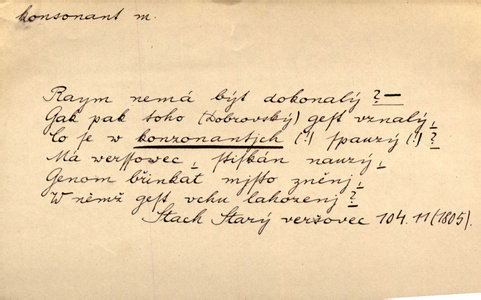 konsonant m.
Raym nemá být dokonalý ? —
Gak pak toho (Dobrovský) gest vznalý,
Co se w konzonantjch (!) spauzý (!) ?
Má werssowec, stifkán nauzý,
Genom břinkat mjsto zněnj,
W němž gest vchu lahozenj ?
Stach Starý veršovec 104. 11 (1805).